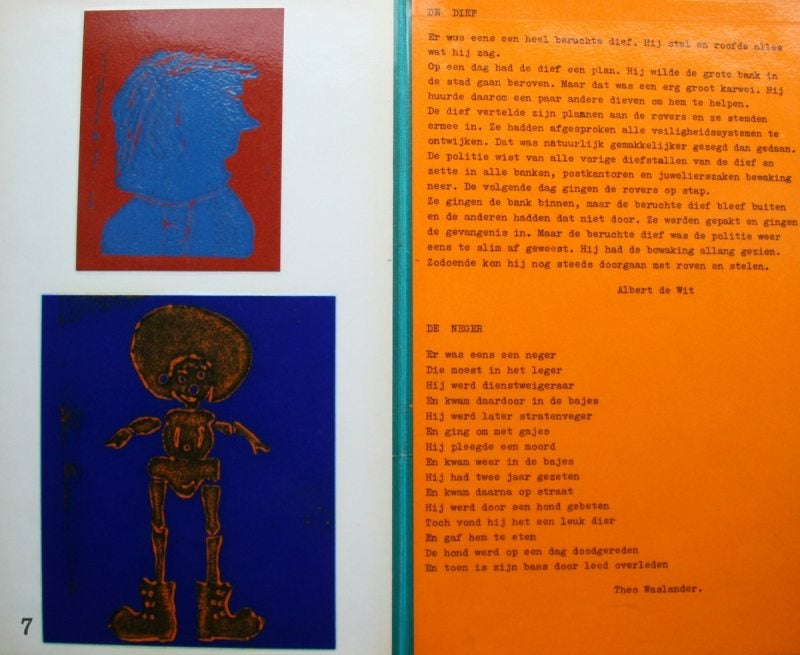 7
DE DIEF
Er was eens een heel beruchte dief. Hij stal en roofde alles
wat hij zag.
Op een dag had de dief een plan. Hij wilde de grote bank in
de stad gaan beroven. Maar dat was een erg groot karwei. Hij
huurde daarom een paar andere dieven om hem te helpen.
De dief vertelde zijn plannen aan de rovers en ze stemden
ermee in. Ze hadden afgesproken alle veiligheidssystemen te
ontwijken. Dat was natuurlijk gemakkelijker gezegd dan gedaan.
De politie wist van alle vorige diefstallen van de dief en
zette in alle banken, postkantoren en juwelierszaken bewaking
neer. De volgende dag gingen de rovers op stap.
Ze gingen de bank binnen, maar de beruchte dief bleef buiten
en de anderen hadden dat niet door. Ze werden gepakt en gingen
de gevangenis in. Maar de beruchte dief was de politie weer
eens te slim af geweest. Hij had de bewaking allang gezien.
Zodoende kon hij nog steeds doorgaan met roven en stelen.
Albert de Wit
DE NEGER
Er was eens een neger
Die moest in het leger
Hij werd dienstweigeraar
En kwam daardoor in de bajes
Hij werd later stratenveger
En ging om met gajes
Hij pleegde een moord
En kwam weer in de bajes
Hij had twee jaar gezeten
En kwam daarna op straat
Hij werd door een hond gebeten
Toch vond hij het een leuk dier
En gaf hem te eten
De hond werd op een dag doodgereden
En toen is zijn baas door leed overleden
Theo Waslander.